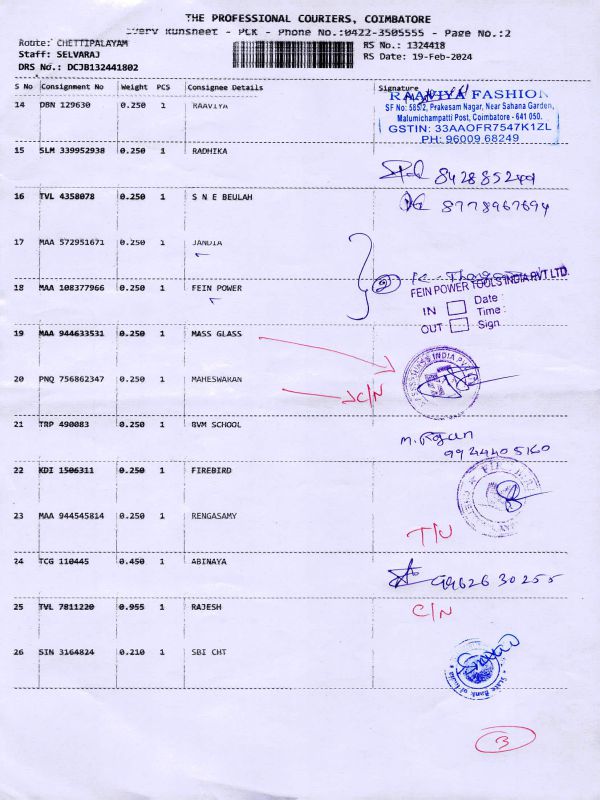 THE PROFESSIONAL COURIERS, COIMBATORE
Runsheet - PCK - Phone No.:0422-3505555 - Page No.:2
Route: CHETTIPALAYAM
Staff: SELVARAJ
DRS No.: DCJB132441802
RS No.: 1324418
RS Date: 19-Feb-2024
S No Consignment No Weight PCS Consignee Details Signature
14 DBN 129630 0.250 1 RAAVIYA
RAAVIYA FASHION
SF No: 585/2, Prakesam Nagar, Near Sahana Garden,
Malumichampatti Post, Coimbatore - 641 050.
GSTIN: 33AAOFR7547K1ZL
PH: 96009 68249
15 SLM 339952938 0.250 1 RADHIKA
8428852449
16 TVL 4358078 0.250 1 S N E BEULAH
8778967694
17 MAA 572951671 0.250 1 JANDIA
18 MAA 108377966 0.250 1 FEIN POWER
FEIN POWER TOOLS INDIA PVT LTD.
IN Date :
Time :
OUT Sign
19 MAA 944633531 0.250 1 MASS GLASS
20 PNQ 756862347 0.250 1 MAHESWARAN
C/N
21 TRP 490083 0.250 1 BVM SCHOOL
9944405160
22 KDI 1506311 0.250 1 FIREBIRD
23 MAA 944545814 0.250 1 RENGASAMY
T/U
24 TCG 110445 0.450 1 ABINAYA
9962630255
25 TVL 7811220 0.955 1 RAJESH
C/N
26 SIN 3164824 0.210 1 SBI CHT
State Bank of India
3